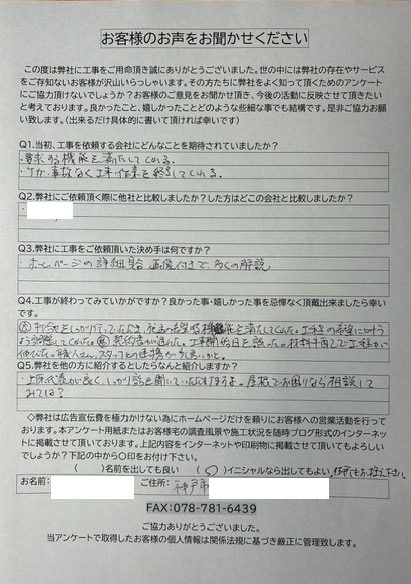 お客様のお声をお聞かせください
この度は弊社に工事をご用命頂き誠にありがとうございました。世の中には弊社の存在やサービス
をご存知ないお客様が沢山いらっしゃいます。その方たちに弊社をよく知って頂くためのアンケート
にご協力頂けないでしょうか？お客様のご意見をお聞かせ頂き、今後の活動に反映させて頂きたい
と考えております。良かったこと、嬉しかったことどのような些細な事でも結構です。是非ご協力お願
い致します。（出来るだけ具体的に書いて頂ければ幸いです）
Q1.当初、工事を依頼する会社にどんなことを期待されていましたか？
・要求する機能を満たしてくれる。
・事故なく工事作業を終了してくれる。
Q2.弊社にご依頼頂く際に他社と比較しましたか？した方はどこの会社と比較しましたか？
Q3.弊社に工事をご依頼頂いた決め手は何ですか？
・ホームページの詳細 画像付きで、多くの解説
Q4.工事が終わってみていかがですか？良かった事・嬉しかった事を忌憚なく頂戴出来ましたら幸
いです。
良 打合せをしっかり行っていただき、希望 機能を満たしてくれた。工事の希望に叶うよう
してくれた。悪 契約書が違った。工事開始日を誤った。材料手配で工事が
伸びた。職人さん、スタッフとの連携が
Q5.弊社を他の方に紹介するとしたらなんと紹介しますか？
・ が良く、しっかり話を聞いていただけますよ。屋根でお困りなら相談して
みては？
◇弊社は広告宣伝費を極力かけない為にホームページだけを頼りにお客様への営業活動を行って
おります。本アンケート用紙またはお客様宅の調査風景や施工状況を随時ブログ形式のインターネッ
トに掲載させて頂いております。上記内容をインターネットや印刷物に掲載させて頂いてもよろしい
でしょうか？下記の中から〇印をお付け下さい。
（　）名前を出しても良い　（○）イニシャルなら出してもよい
お名前：　ご住所：神戸市
FAX:078-781-6439
ご協力ありがとうございました。
当アンケートで取得したお客様の個人情報は関係法規に基づき厳正に管理致します。